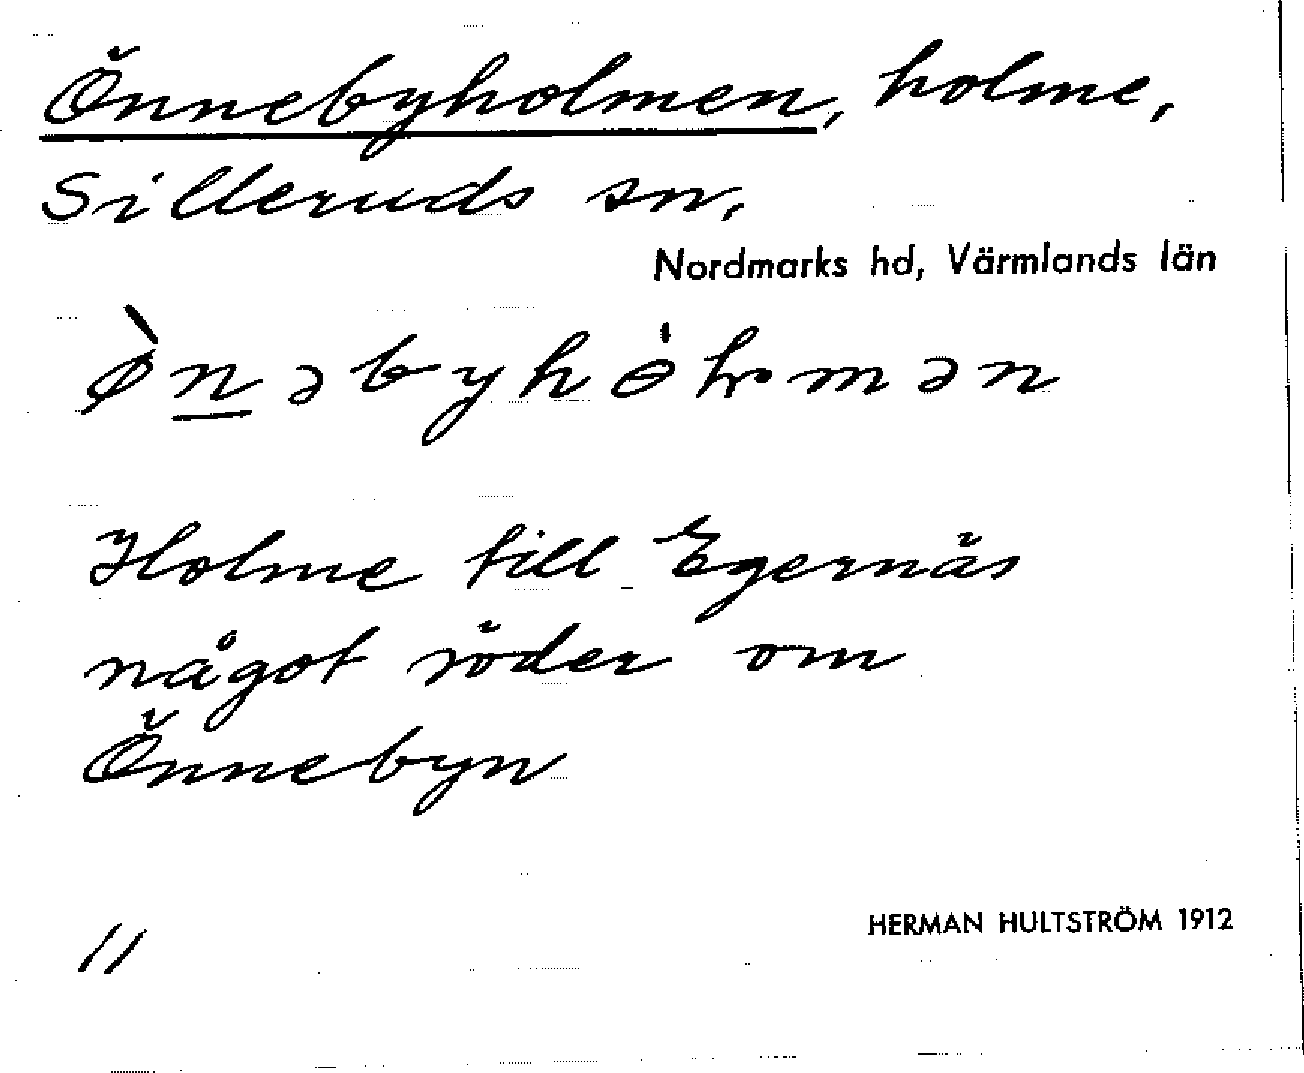 Önnebyholmen, holme,
Silleruds sn,
Nordmarks hd, Värmlands län
ø̀n̲əbyhɵ́lmən
Holme till Egernäs
något söder om
Önnebyn
11
HERMAN HULTSTRÖM 1912